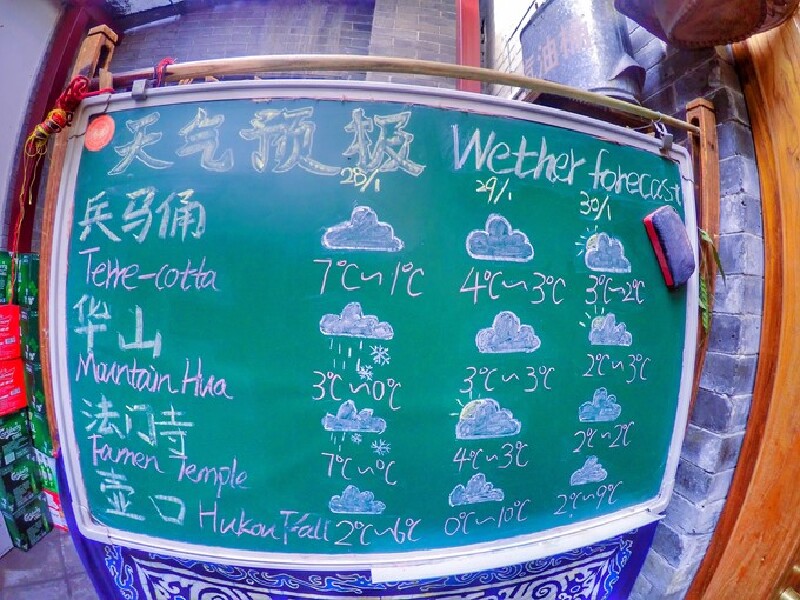 天气预极 Wether forecast
28/1 29/1 30/1
兵马俑
Terre-cotta 7℃~1℃ 4℃~3℃ 3℃~2℃
华山
Mountain Hua 3℃~0℃ 3℃~3℃ 2℃~3℃
法门寺
Famen Temple 7℃~0℃ 4℃~3℃ 2℃~2℃
壶口 Hukou Fall 2℃~6℃ 0℃~10℃ 2℃~9℃